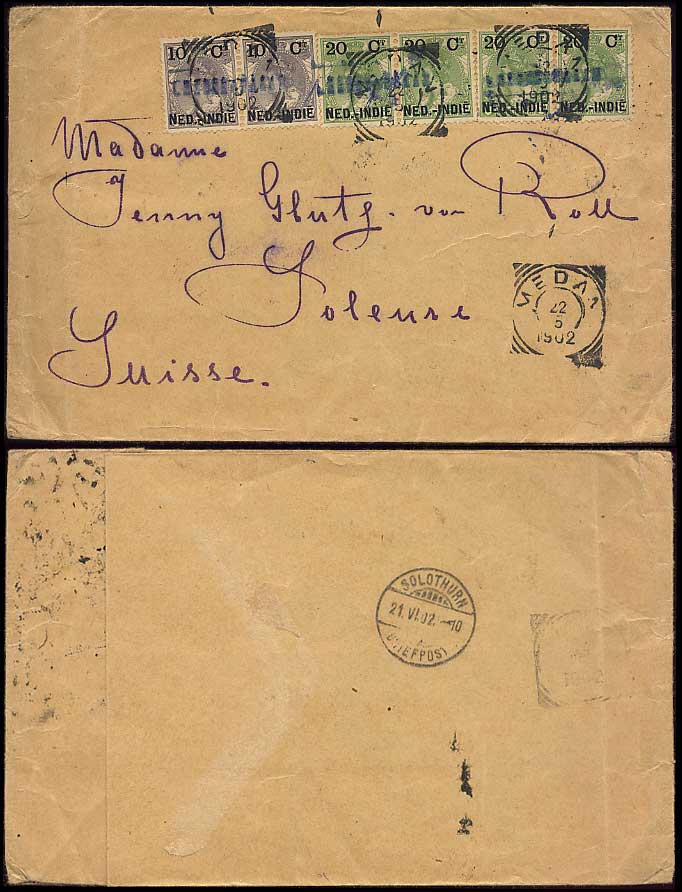 10 Ct 10 Ct 20 Ct 20 Ct 20 Ct 20 Ct
NED.-INDIE NED.-INDIE NED.-INDIE NED.-INDIE NED.-INDIE NED.-INDIE
1902 1902 1902
Madame
Jenny Glutz-von Roll
Soleure
Suisse.
MEDAN
22
5
1902
SOLOTHURN
21.VI.02.-10
(BRIEFPOST)